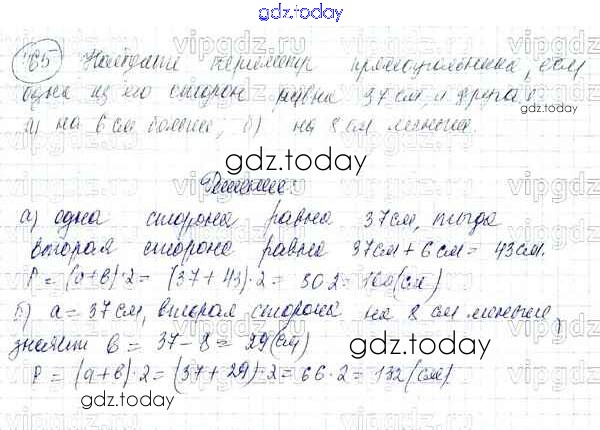 gdz.today
765 Найдите периметр прямоугольника, если
одна из его сторон равна 37 см, а другая
а) на 6 см больше; б) на 8 см меньше.
gdz.today
Решение:
а) одна сторона равна 37 см, тогда
вторая сторона равна 37 см + 6 см = 43 см.
P = (a+b)·2 = (37 + 43)·2 = 80·2 = 160 (см)
б) a = 37 см, вторая сторона на 8 см меньше,
значит b = 37 - 8 = 29 (см)
gdz.today
P = (a+b)·2 = (37 + 29)·2 = 66·2 = 132 (см)
gdz.today